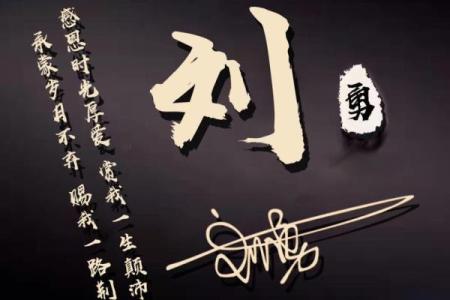 刘
勇
感恩时光厚爱 赏我一生颠沛
承蒙岁月不弃 赐我一路荆
刘勇